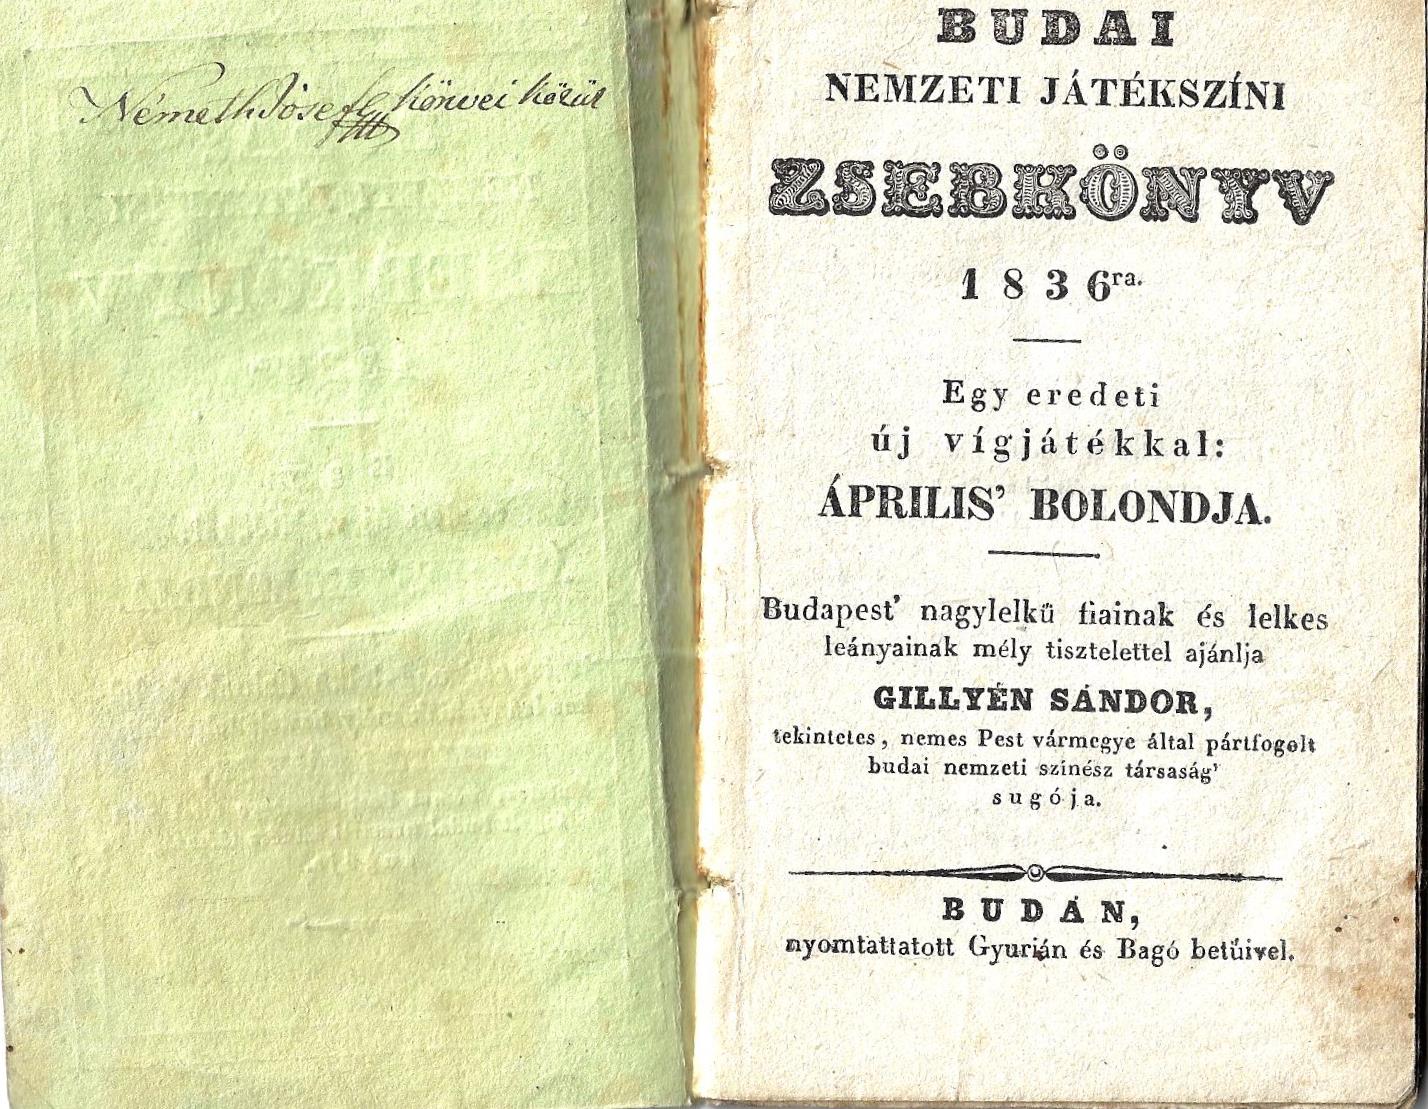 Németh Jósef könvei közül
BUDAI
NEMZETI JÁTÉKSZÍNI
ZSEBKÖNYV
1836ra.
Egy eredeti
új vígjátékkal:
ÁPRILIS' BOLONDJA.
Budapest' nagylelkű fiainak és lelkes
leányainak mély tisztelettel ajánlja
GILLYÉN SÁNDOR,
tekintetes, nemes Pest vármegye által pártfogolt
budai nemzeti színész társaság'
sugója.
BUDÁN,
nyomtattatott Gyurián és Bagó betűivel.